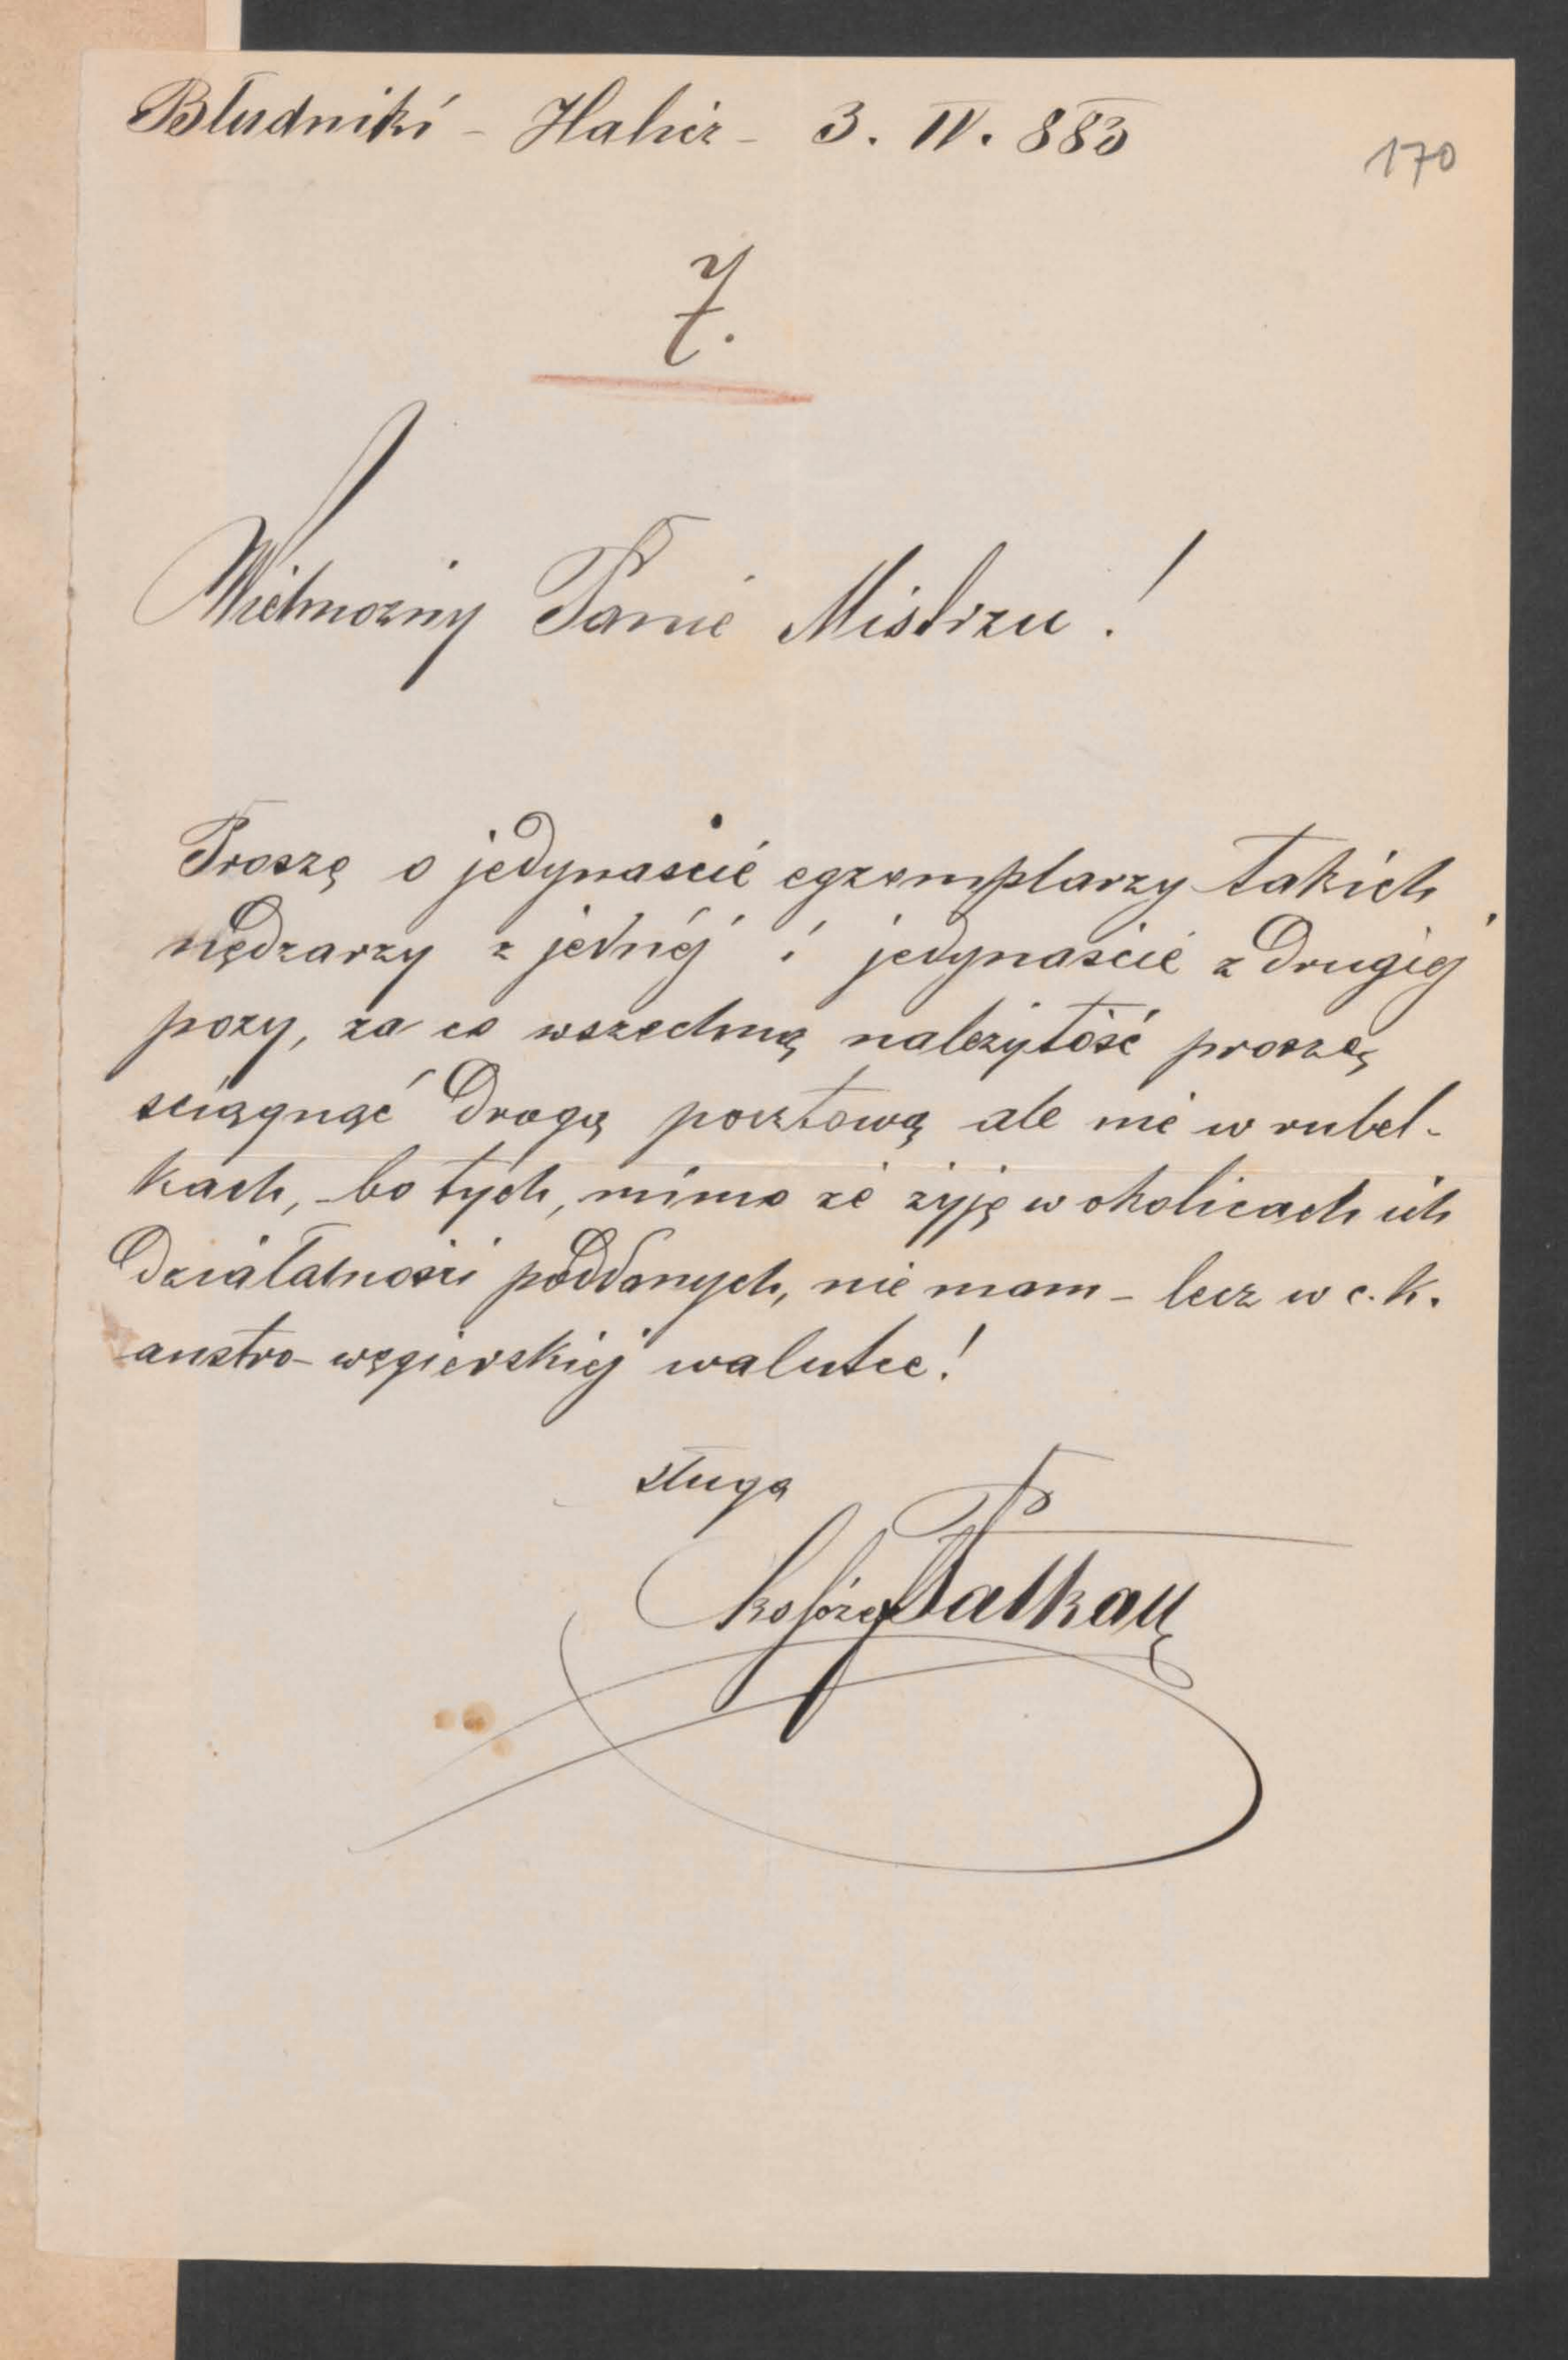 Błudniki - Halicz - 3. IV. 883
170
7.
Wielmożny Panie Mistrzu!
Proszę o jedynaście egzemplarzy takich
nędzarzy z jednéj i jedynaście z drugiej
pozy, za co wszechną należytość proszę
sciągnąć drogą pocztową ale nie w rubel-
kach, - bo tych, mimo że żyję w okolicach ich
działalności poddanych, nie mam - lecz w c. k.
austro-węgierskiej walutce!
sługa